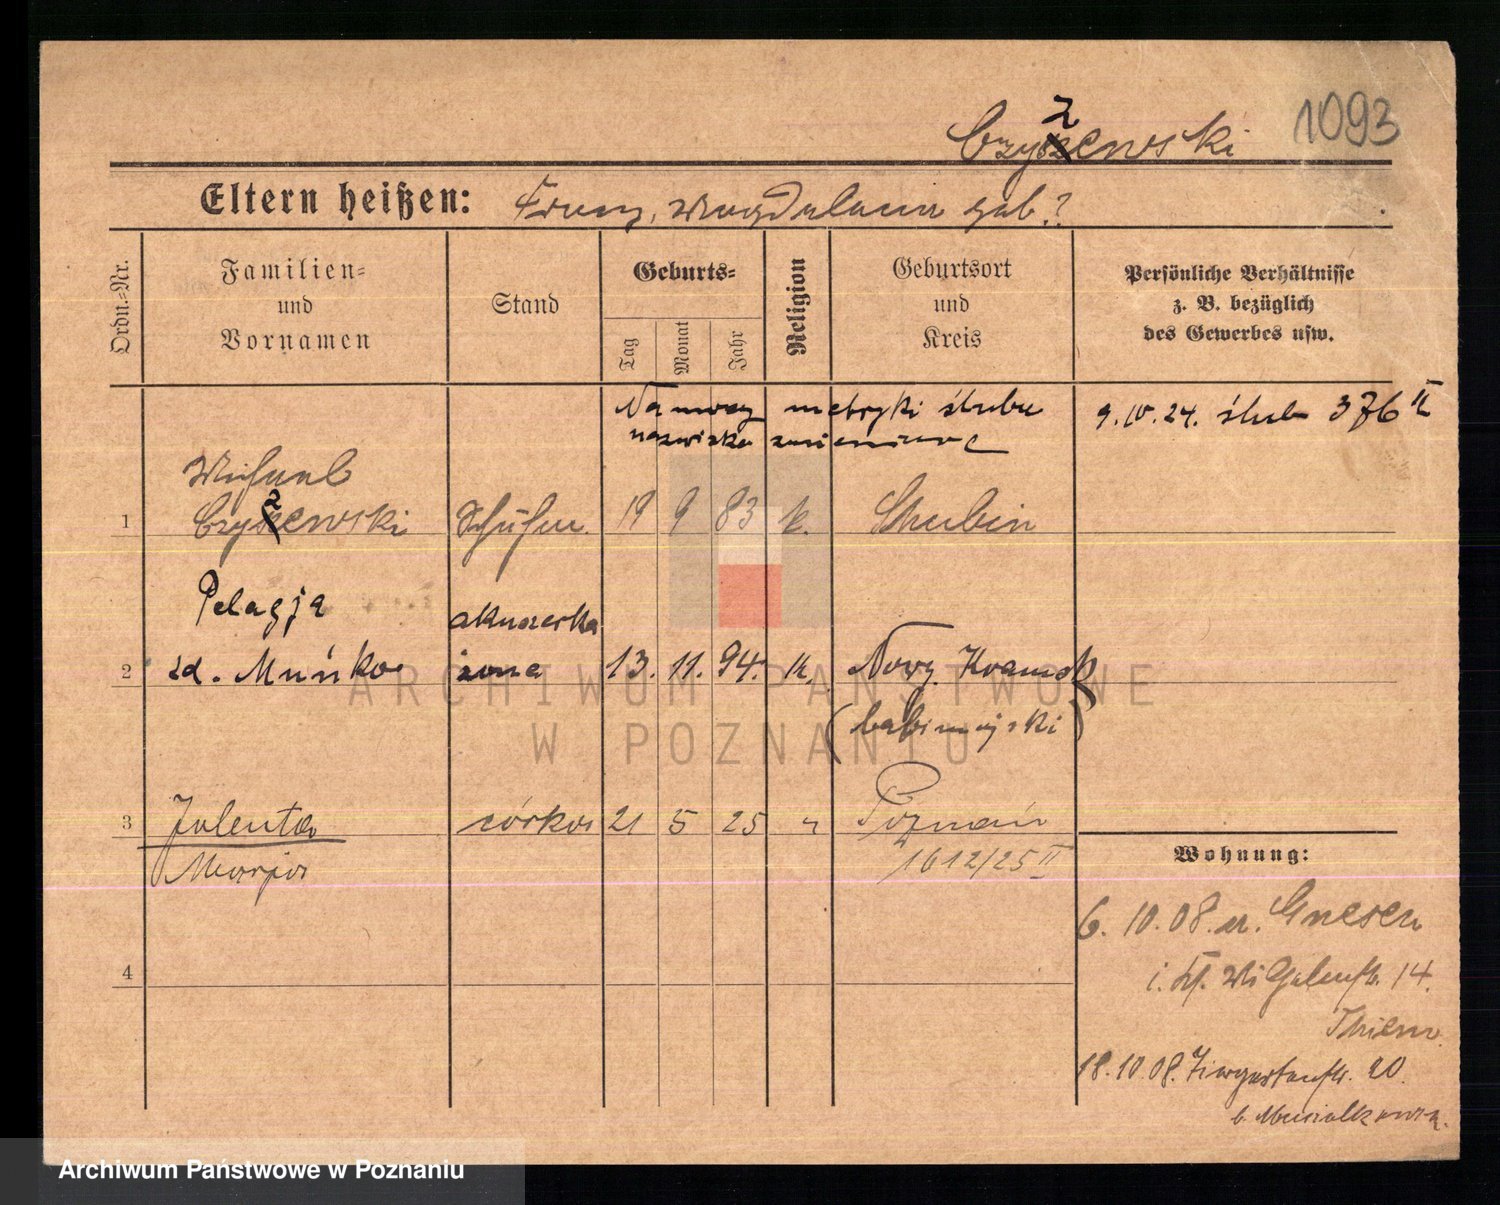 1093
Czyżewski
Eltern heißen: Franz, Magdalena geb.?
Ordn.=Nr.
Familien=
und
Vornamen
Stand
Geburts=
Tag
Monat
Jahr
Religion
Geburtsort
und
Kreis
Persönliche Verhältnisse
z. B. bezüglich
des Gewerbes usw.
Na mocy metryki ślubu
nazwisko zmienione
9.IV.24. ślub 376 II
1
Michael
Czyżewski
19 9 83 k. Schubin
Pelagja
akuszerka
2
zd. Muńko żona 13. 11. 94. k. Nowy Kramsk
(babimojski)
3
Jolenta córka 21 5 25 Poznań
Marja
1612/25 II
4
Wohnung:
6. 10. 08. Gnesen
14.
18. 10. 08. 20.
b.
ARCHIWUM PAŃSTWOWE
W POZNANIU
Archiwum Państwowe w Poznaniu